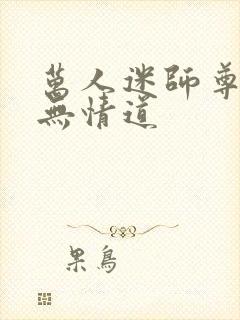 萬人迷師尊
無情道
果鳥